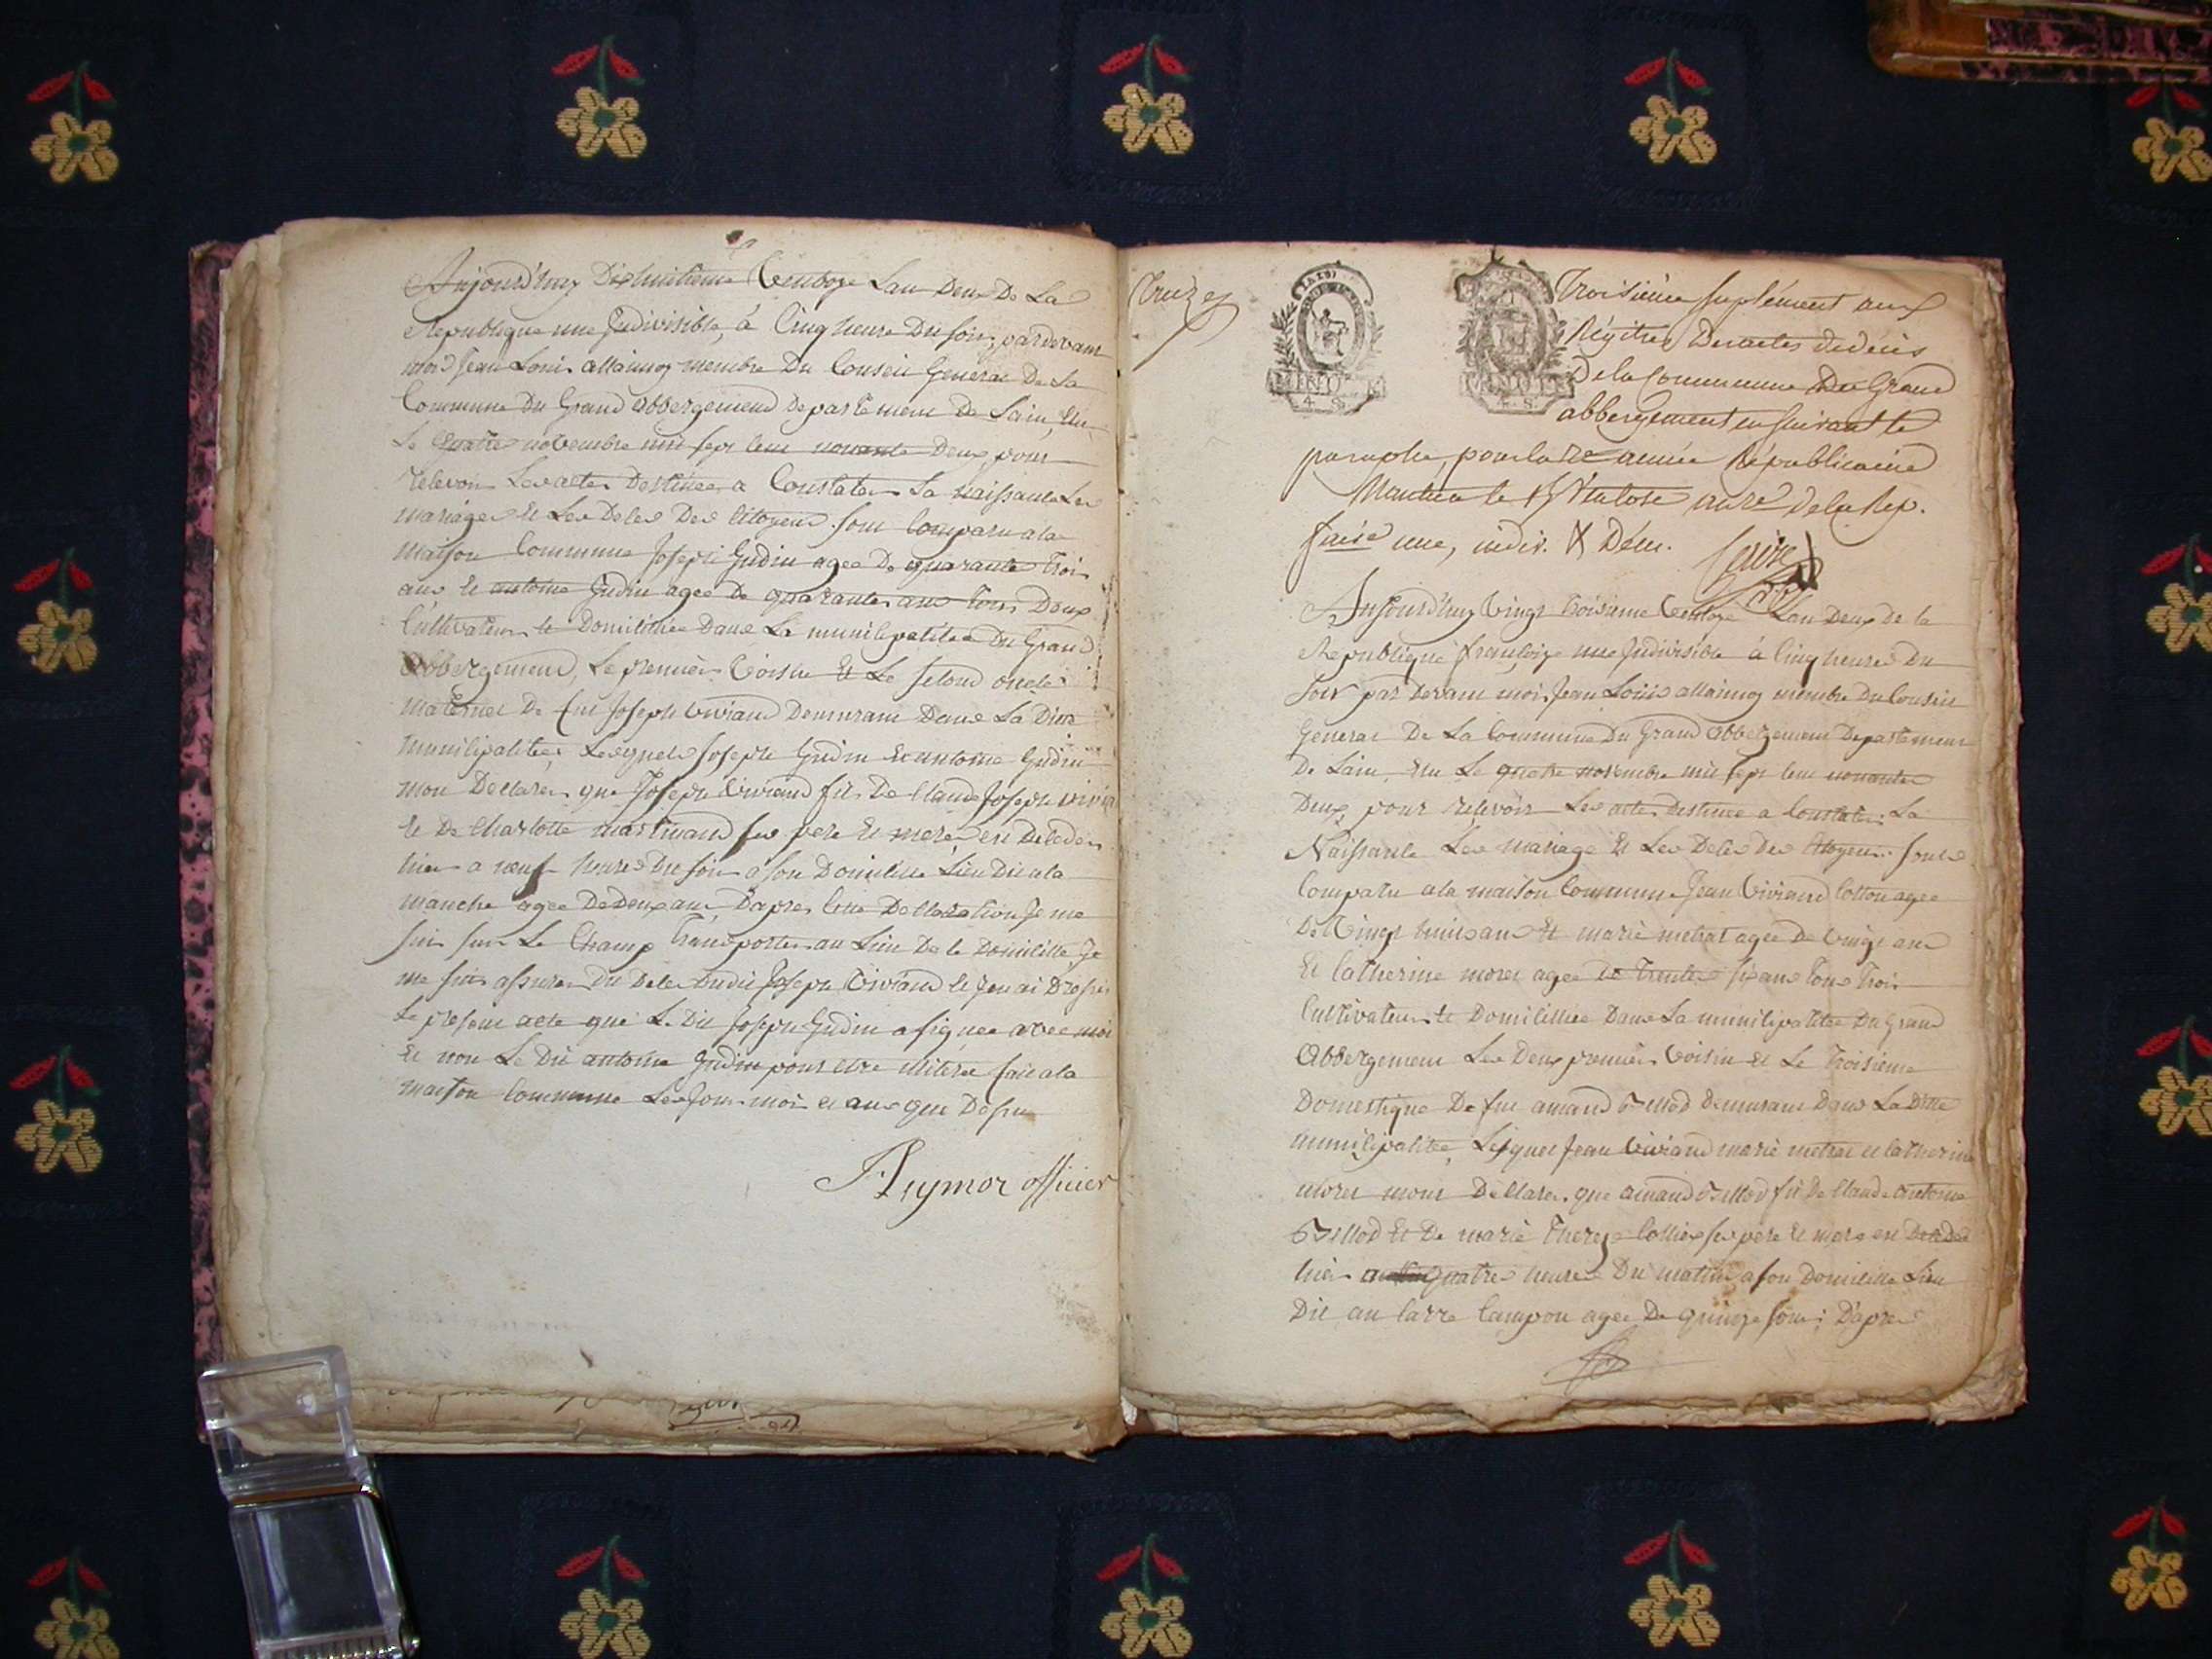 Aujourd'huy Dixhuitieme Ventoze Lan Deux De La
Republique une Indivisible, à Cinq heure Du soir, pardevant
moi Jean Louis allaimoz membre Du Conseil General De La
Commune Du Grand abbergement Departement De Lain, Elu
Le Quatre novembre mil sept Cent nonante Deux pour
recevoir Les actes Destinees a Constater La naissance Les
mariages et Les Deces Des Citoyens sont Comparu a la
maison Commune Joseph Gudin agee De quarante trois
ans et antoine Gudin agee De quarantes ans tous Deux
Cultivateurs et Domicilliee Dans La municipalitee Du Grand
Abbergement, Le premier Voisin et Le second oncle
maternel De feu Joseph Viviand Demeurant Dans La Ditte
municipalitee, Lesquels Joseph Gudin et antoine Gudin
mon Declarer que Joseph Viviand fils De Claude Joseph vivia
et De Charlotte martinand ses pere et mere, est Decedee
hier a neuf heures Du soir a son Domicille Lieu Dit a la
manche agee De Deux ans, Dapres Cette Declaration Je me
suis sur Le Champ transporter au Lieu De Ce Domicille, Je
me suis assurer Du Deces Dudit Joseph Viviand et Jen ai Dressée
Le present acte que Le Dit Joseph Gudin a signee avec moi
et non Le Dit antoine Gudin pour etre illiteree fait a la
maison Commune Les Jour mois et ans que Dessus
officier
Troisième suplément aux
Régitres Des actes de décès
De la Commune Du Grand
abbergement en suivant le
paraphe, pour la 2e année Républicaine
Nantua le Ventose an 2e de la Rep.
fse une, indiv. & Dém.
Aujourd'huy Vingt troisieme Ventoze Lan Deux de la
Republique françoize une Indivisible a Cinq heures Du
soir par Devant moi Jean Louis allaimoz membre Du Conseil
General De La Commune Du Grand abbergement Departement
De Lain Elu Le quatre novembre mil sept Cent nonante
Deux, pour recevoir Les actes Destinee a Constater La
Naissance Les mariage et Les Deces Des Citoyens sont
Comparu a la maison Commune Jean Viviand Cotton agee
De Vingt huit ans et marie metrat agee De Vingt ans
et Catherine morel agee de trente six ans tous trois
Cultivateurs et Domicilliee Dans La municipalitee Du Grand
Abbergement Les Deux premier Voisin et Le troisieme
Domestique De feu amand Demeurant Dans La Ditte
municipalitee, Lesquel Jean Viviand marie metrat et Catherine
morel mont Declarer que amand fils De Claude antoine
et De marie thereze ses pere et mere est Decedee
hier quatre heures Du matin a son Domicille Lieu
Dit au Carre Campon agee De quinze Jour; Dapres